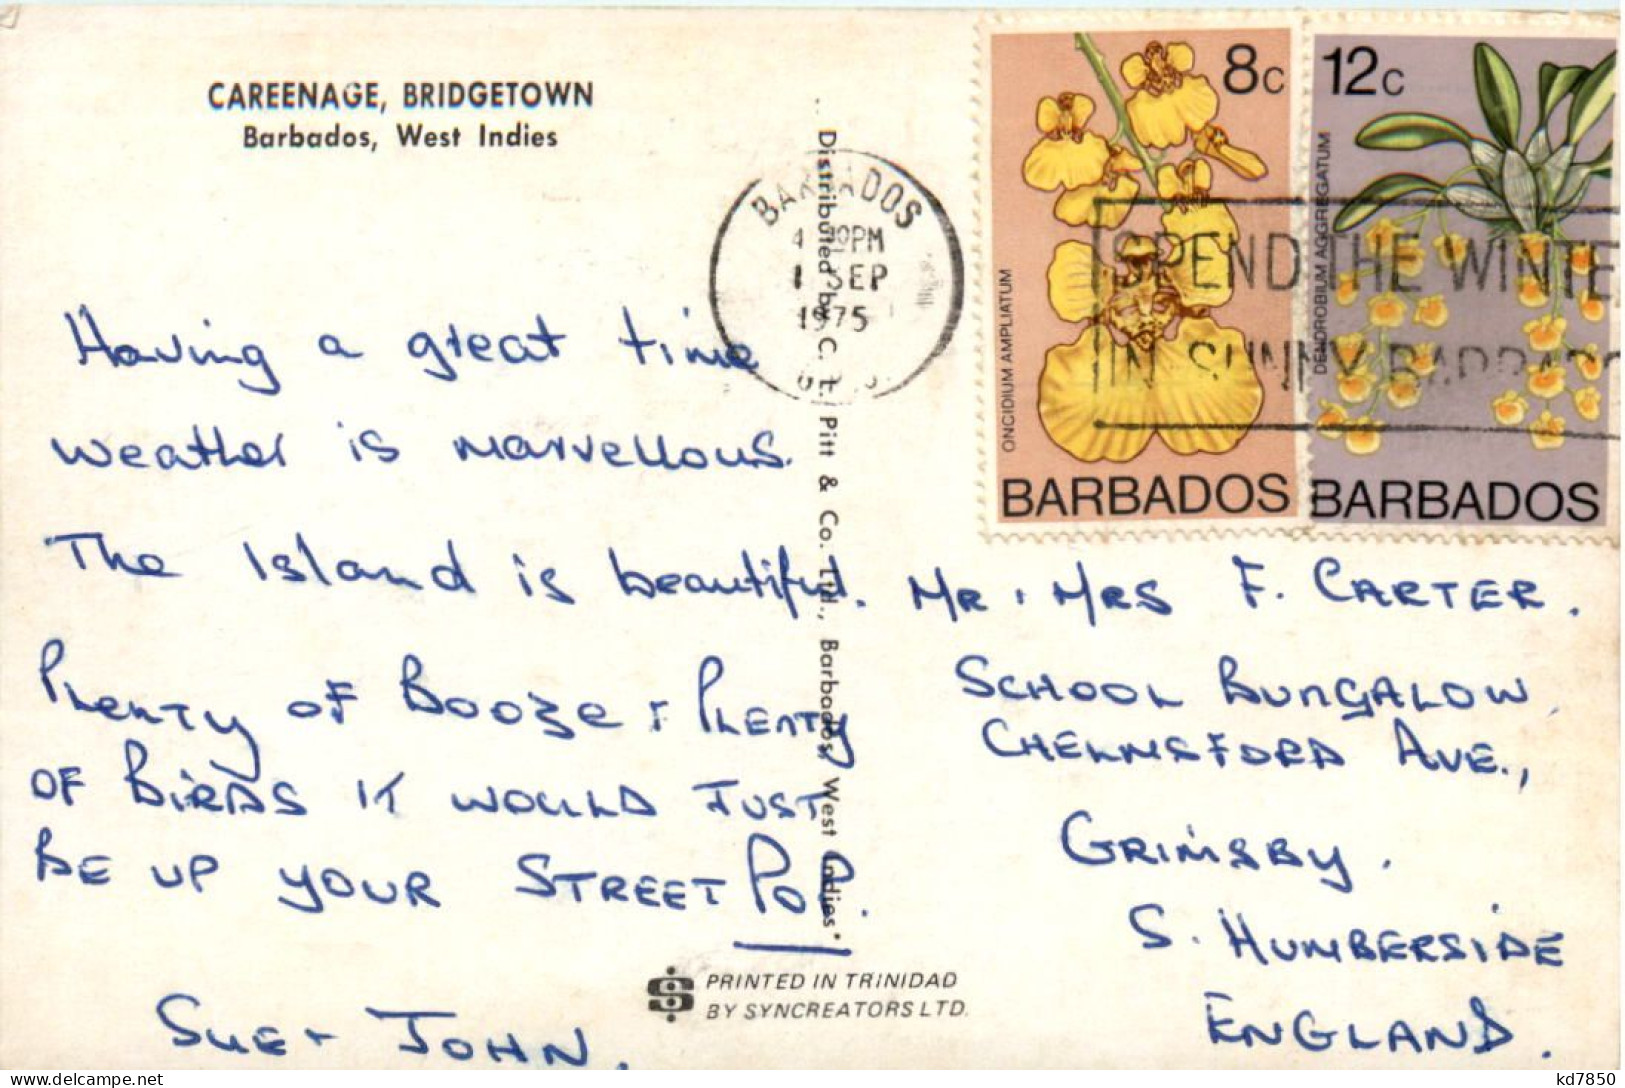 CAREENAGE, BRIDGETOWN
Barbados, West Indies
8c
12c
ONCIDIUM AMPLIATUM
DENDROBIUM AGGREGATUM
BARBADOS
BARBADOS
BARBADOS
PM
1 SEP
1975
SPEND THE WINTE
IN SUNNY BARBADOS
Distributed by C. L. Pitt & Co. Ltd., Barbados, West Indies
Having a great time
weather is marvellous.
The Island is beautiful.
PLENTY OF BOOZE + PLENTY
OF BIRDS IT WOULD JUST
BE UP YOUR STREET POP.
SUE + JOHN.
MR + MRS F. CARTER.
SCHOOL BUNGALOW,
CHELMSFORD AVE.,
GRIMSBY.
S. HUMBERSIDE
ENGLAND.
PRINTED IN TRINIDAD
BY SYNCREATORS LTD.
kd7850